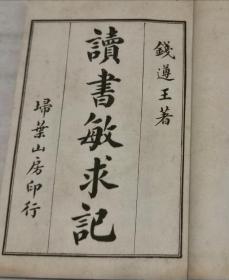 錢遵王著
讀書敏求記
埽葉山房印行